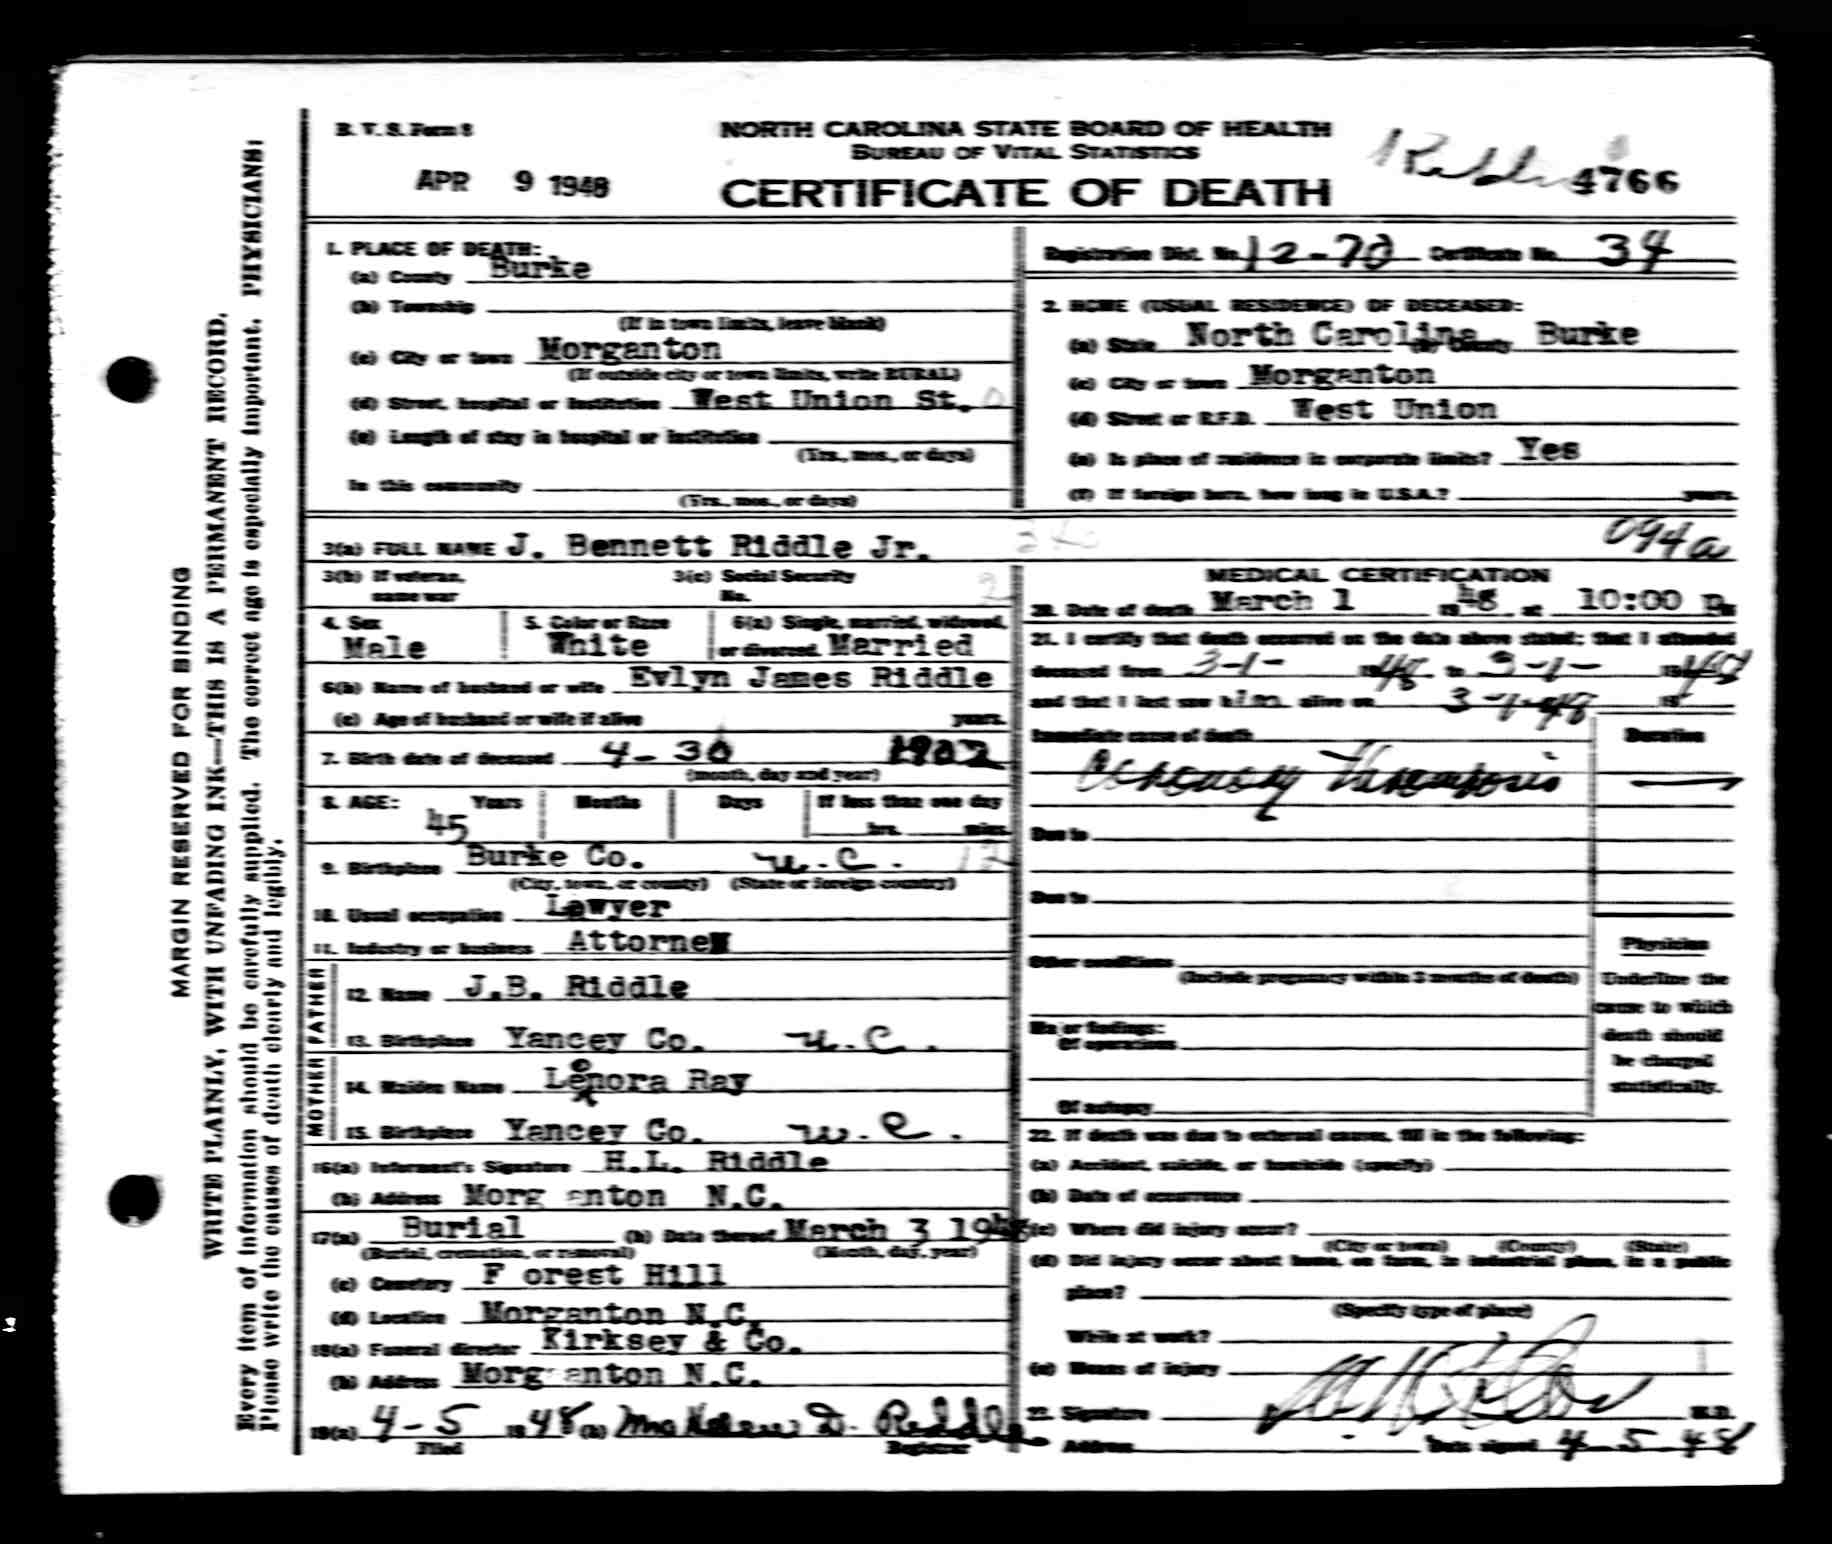 B. V. S. Form 8
NORTH CAROLINA STATE BOARD OF HEALTH
BUREAU OF VITAL STATISTICS
CERTIFICATE OF DEATH
APR 9 1948
4766
MARGIN RESERVED FOR BINDING
WRITE PLAINLY, WITH UNFADING INK—THIS IS A PERMANENT RECORD.
Every item of information should be carefully supplied. The correct age is especially important. PHYSICIANS:
Please write the causes of death clearly and legibly.
1. PLACE OF DEATH:
(a) County Burke
(b) Township
(If in town limits, leave blank)
(c) City or town Morganton
(If outside city or town limits, write RURAL)
(d) Street, hospital or institution West Union St.
(e) Length of stay in hospital or institution
(Yrs., mos., or days)
In this community
(Yrs., mos., or days)
Registration Dist. No. 12-70 Certificate No. 34
2. HOME (USUAL RESIDENCE) OF DECEASED:
(a) State North Carolina (b) County Burke
(c) City or town Morganton
(d) Street or R.F.D. West Union
(e) Is place of residence in corporate limits? Yes
(f) If foreign born, how long in U.S.A.? years.
3(a) FULL NAME J. Bennett Riddle Jr.
094a
3(b) If veteran, name war
3(c) Social Security No.
4. Sex Male
5. Color or Race White
6(a) Single, married, widowed, or divorced. Married
6(b) Name of husband or wife Evlyn James Riddle
(c) Age of husband or wife if alive years.
7. Birth date of deceased 4-30 1902
(month, day and year)
8. AGE: Years 45 Months Days If less than one day
hrs. mins.
9. Birthplace Burke Co. N.C.
(City, town, or county) (State or foreign country)
10. Usual occupation Lawyer
11. Industry or business Attorney
FATHER
12. Name J.B. Riddle
13. Birthplace Yancey Co. N.C.
MOTHER
14. Maiden Name Lenora Ray
15. Birthplace Yancey Co. N.C.
16(a) Informant's Signature H.L. Riddle
(b) Address Morganton N.C.
17(a) Burial (b) Date thereof March 3 1948
(Burial, cremation, or removal) (Month, day, year)
(c) Cemetery Forest Hill
(d) Location Morganton N.C.
18(a) Funeral director Kirksey & Co.
(b) Address Morganton N.C.
19(a) 4-5 1948 (b) Mrs Helen D. Riddle
Filed Registrar
MEDICAL CERTIFICATION
20. Date of death March 1 1948 at 10:00 P m
21. I certify that death occurred on the date above stated; that I attended
deceased from 3-1- 1948 to 3-1- 1948
and that I last saw him alive on 3-1-48 19
Immediate cause of death
Duration
Coronary Thrombosis
Due to
Due to
Other conditions
(Include pregnancy within 3 months of death)
Major findings:
Of operations
Of autopsy
Physician
Underline the
cause to which
death should
be charged
statistically.
22. If death was due to external causes, fill in the following:
(a) Accident, suicide, or homicide (specify)
(b) Date of occurrence
(c) Where did injury occur?
(City or town) (County) (State)
(d) Did injury occur about home, on farm, in industrial place, in a public
place?
(Specify type of place)
While at work?
(e) Means of injury
23. Signature M.D.
Address Date signed 4-5-48